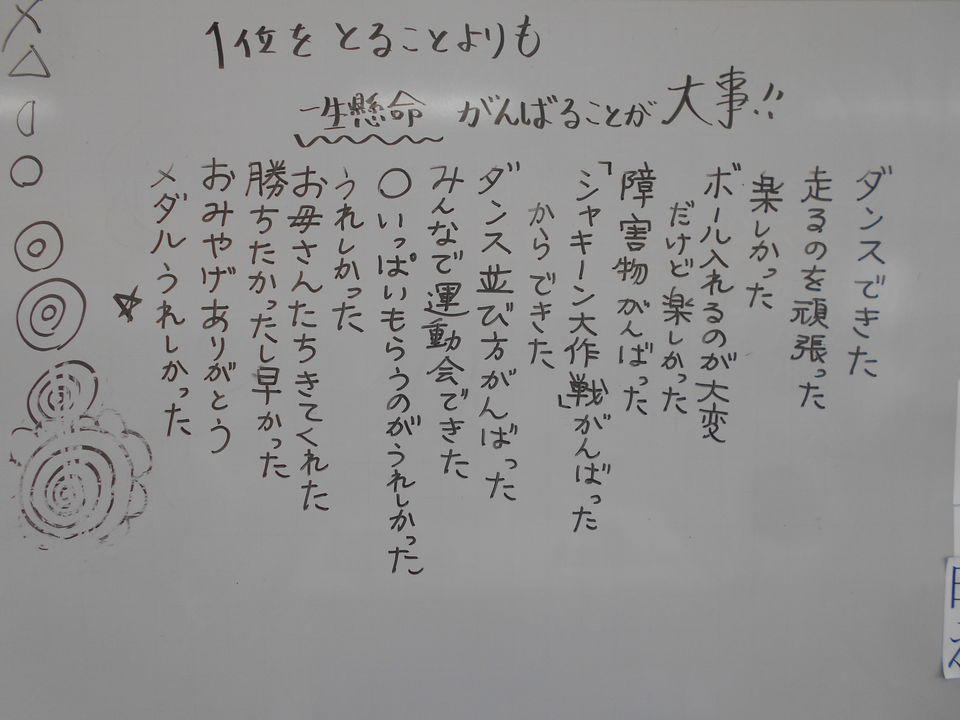 1位をとることよりも
一生懸命がんばることが大事!!
ダンスできた
走るのを頑張った
楽しかった
ボール入れるのが大変
だけど楽しかった
障害物がんばった
「シャキーン大作戦」がんばった
からできた
ダンス並び方がんばった
みんなで運動会できた
○いっぱいもらうのがうれしかった
うれしかった
お母さんたちきてくれた
勝ちたかったし早かった
おみやげありがとう
メダルうれしかった